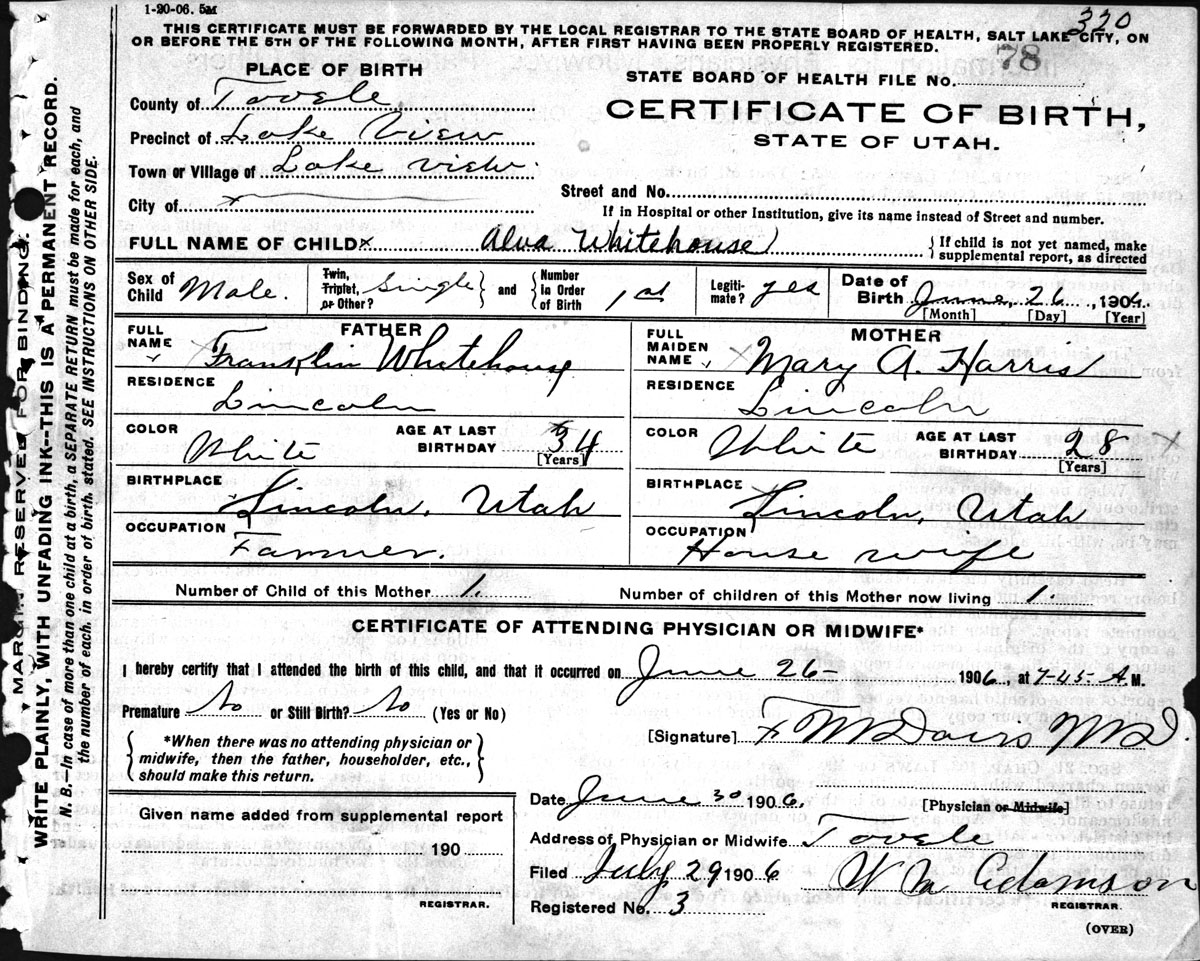 1-20-06. 5M
320
THIS CERTIFICATE MUST BE FORWARDED BY THE LOCAL REGISTRAR TO THE STATE BOARD OF HEALTH, SALT LAKE CITY, ON
OR BEFORE THE 5TH OF THE FOLLOWING MONTH, AFTER FIRST HAVING BEEN PROPERLY REGISTERED.
PLACE OF BIRTH
STATE BOARD OF HEALTH FILE NO. 78
County of Tooele
CERTIFICATE OF BIRTH,
Precinct of Lake View
STATE OF UTAH.
Town or Village of Lake View.
Street and No.
City of
If in Hospital or other Institution, give its name instead of Street and number.
FULL NAME OF CHILD Alva Whitehouse
If child is not yet named, make
supplemental report, as directed
Sex of Child Male.
Twin, Triplet, or Other? Single and Number In Order of Birth 1st
Legitimate? yes
Date of Birth June 26, 1904.
[Month] [Day] [Year]
FATHER
FULL NAME Franklin Whitehouse
RESIDENCE
Lincoln
COLOR White AGE AT LAST BIRTHDAY 34
[Years]
BIRTHPLACE
Lincoln, Utah
OCCUPATION
Farmer.
MOTHER
FULL MAIDEN NAME Mary A. Harris
RESIDENCE
Lincoln
COLOR White AGE AT LAST BIRTHDAY 28
[Years]
BIRTHPLACE
Lincoln, Utah
OCCUPATION
House wife
Number of Child of this Mother 1.
Number of children of this Mother now living 1.
CERTIFICATE OF ATTENDING PHYSICIAN OR MIDWIFE*
I hereby certify that I attended the birth of this child, and that it occurred on June 26- 1906, at 7-45- A.M.
Premature No or Still Birth? No (Yes or No)
[Signature] F M Davis MD.
*When there was no attending physician or
midwife, then the father, householder, etc.,
should make this return.
Date June 30 1906. [Physician or Midwife]
Given name added from supplemental report
190
REGISTRAR.
Address of Physician or Midwife Tooele
Filed July 29 1906 W M Adamson
REGISTRAR.
Registered No. 3
(OVER)
MARGIN RESERVED FOR BINDING.
WRITE PLAINLY, WITH UNFADING INK--THIS IS A PERMANENT RECORD.
N. B.—In case of more than one child at a birth, a SEPARATE RETURN must be made for each, and
the number of each, in order of birth, stated. SEE INSTRUCTIONS ON OTHER SIDE.